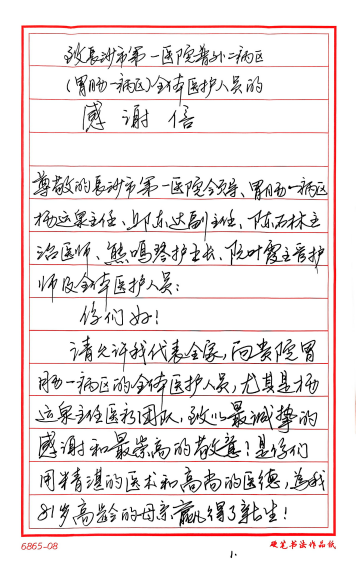 致长沙市第一医院普外二病区
(胃肠一病区)全体医护人员的
感谢信
尊敬的长沙市第一医院领导、胃肠一病区
杨运泉主任、邹东达副主任、陈石林主
治医师、熊鸣琴护士长、阮叶霞主管护
师及全体医护人员:
你们好!
请允许我代表全家,向贵院胃
肠一病区的全体医护人员,尤其是杨
运泉主任医疗团队,致以最诚挚的
感谢和最崇高的敬意!是你们
用精湛的医术和高尚的医德,为我
81岁高龄的母亲赢得了新生!
6865-08
硬笔书法作品纸
1.